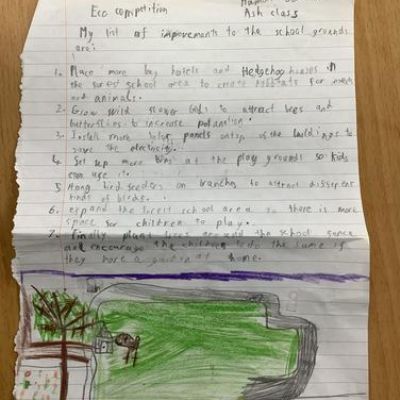 Eco competition
Ash class
My list of improvements to the school grounds
are:
1. Place more bug hotels and Hedgehog houses in
the forest school area to create habitats for insects
and animals.
2. Grow wild flower beds to attract bees and
butterflies to increase
3. Install more solar panels on top of the buildings to
save the electricity.
4. Set up more bins at the play grounds so kids
can use it.
5. Hang bird feeders on branches to attract different
kinds of birds.
6. expand the forest school area so there is more
space for children to play.
7. Finally plant trees around the school fence
and encourage the children to do the same if
they have a garden at home.